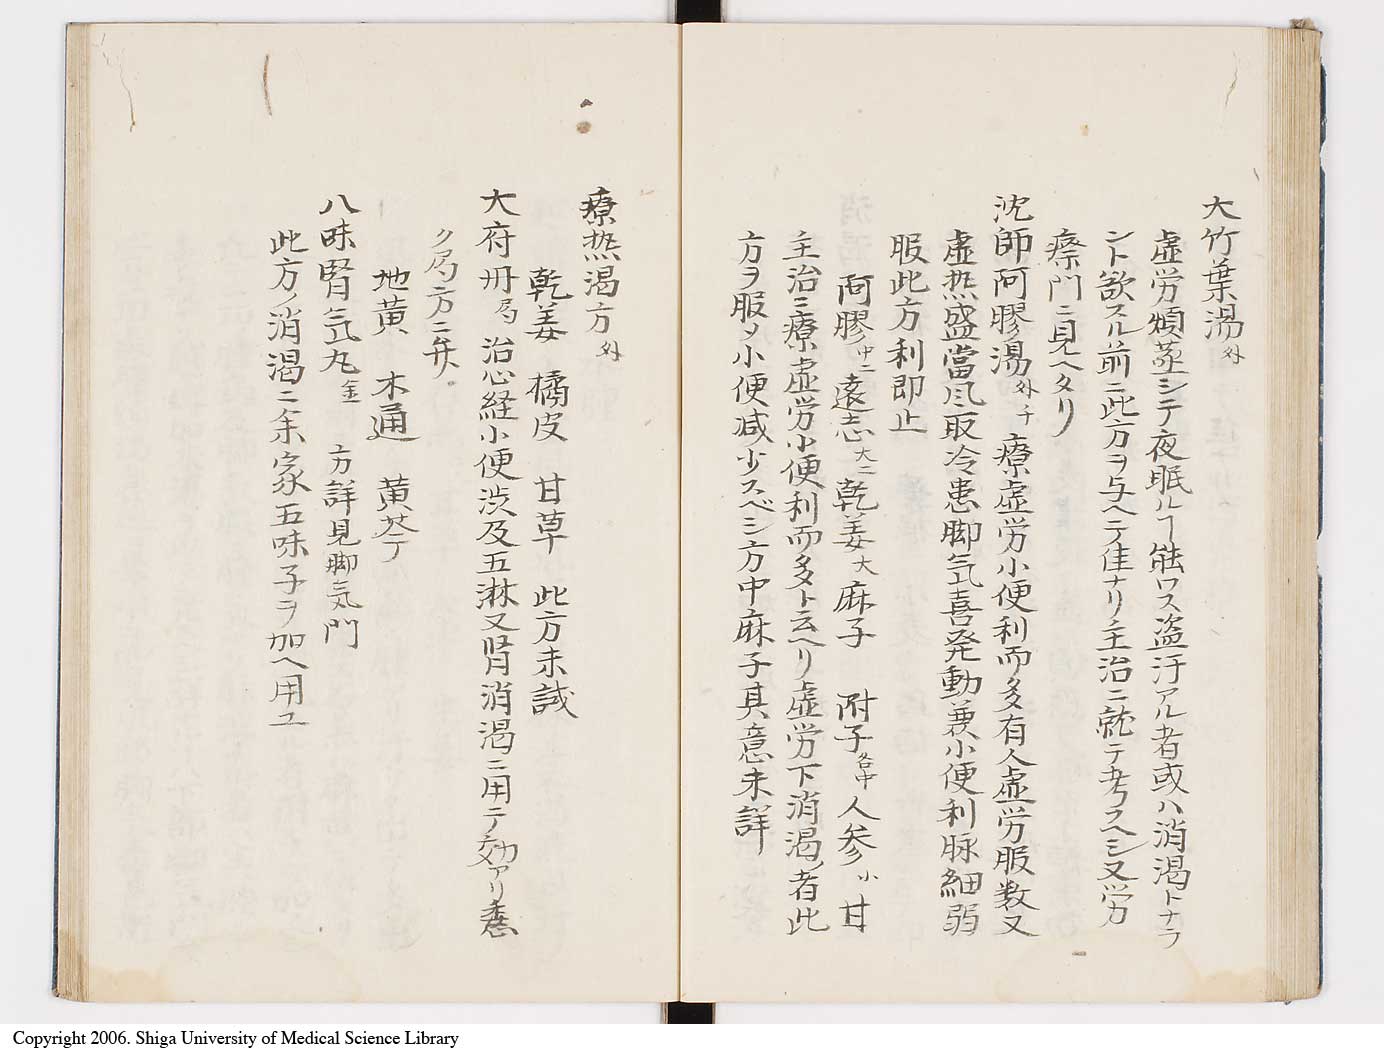 大竹葉湯 外
虚労煩蒸シテ夜眠ルヿ能ワス盗汗アル者或ハ消渇トナラ
ント欲スル前ニ此方ヲ与ヘテ佳ナリ主治ニ就テ考フヘシ又労
瘵門ニ見ヘタリ
沈師阿膠湯 外千 療虚労小便利而多有人虚労服散又
虚热盛當风取冷患脚気喜発動兼小便利脉細弱
服此方利即止
阿膠中二 遠志大二 乾姜大 麻子 附子各中 人参小 甘
主治ニ療虚労小便利而多ト云ヘリ虚労下消渇ノ者此
方ヲ服メ小便减少スベシ方中麻子其意未詳
療热渇方 外
乾姜 橘皮 甘草 此方未試
大府丹局 治心経小便渋及五淋又腎消渇ニ用テ効アリ委
ク局方ニ弁。
地黄 木通 黄芩
八味腎気丸 金 方詳見脚気門
此方ノ消渇ニ余家五味子ヲ加ヘ用ユ
Copyright 2006. Shiga University of Medical Science Library